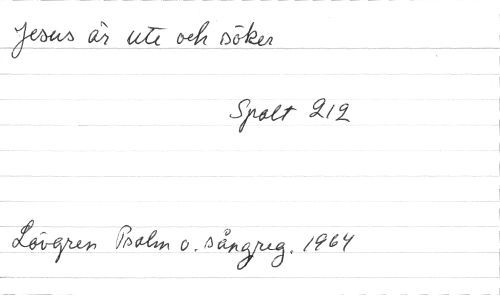 Jesus är ute och söker
Spalt 212
Lövgren Psalm o. sångreg. 1964